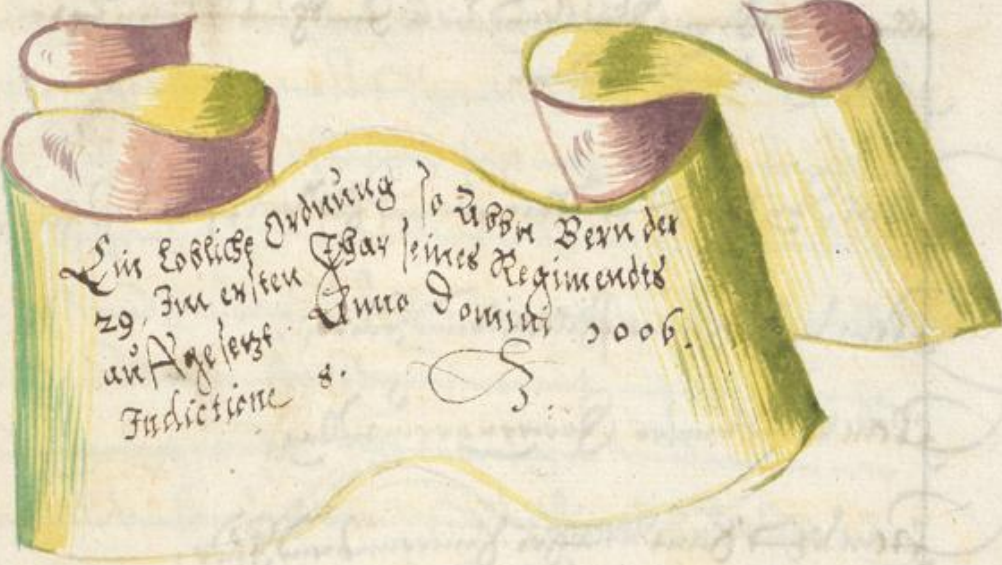 Ein Lobliche Ordnüng so Abbt Bern der
29. Im ersten Jhar seines Regimendts
aüffgesetzt. Anno Domini 1006.
Indictione 8.